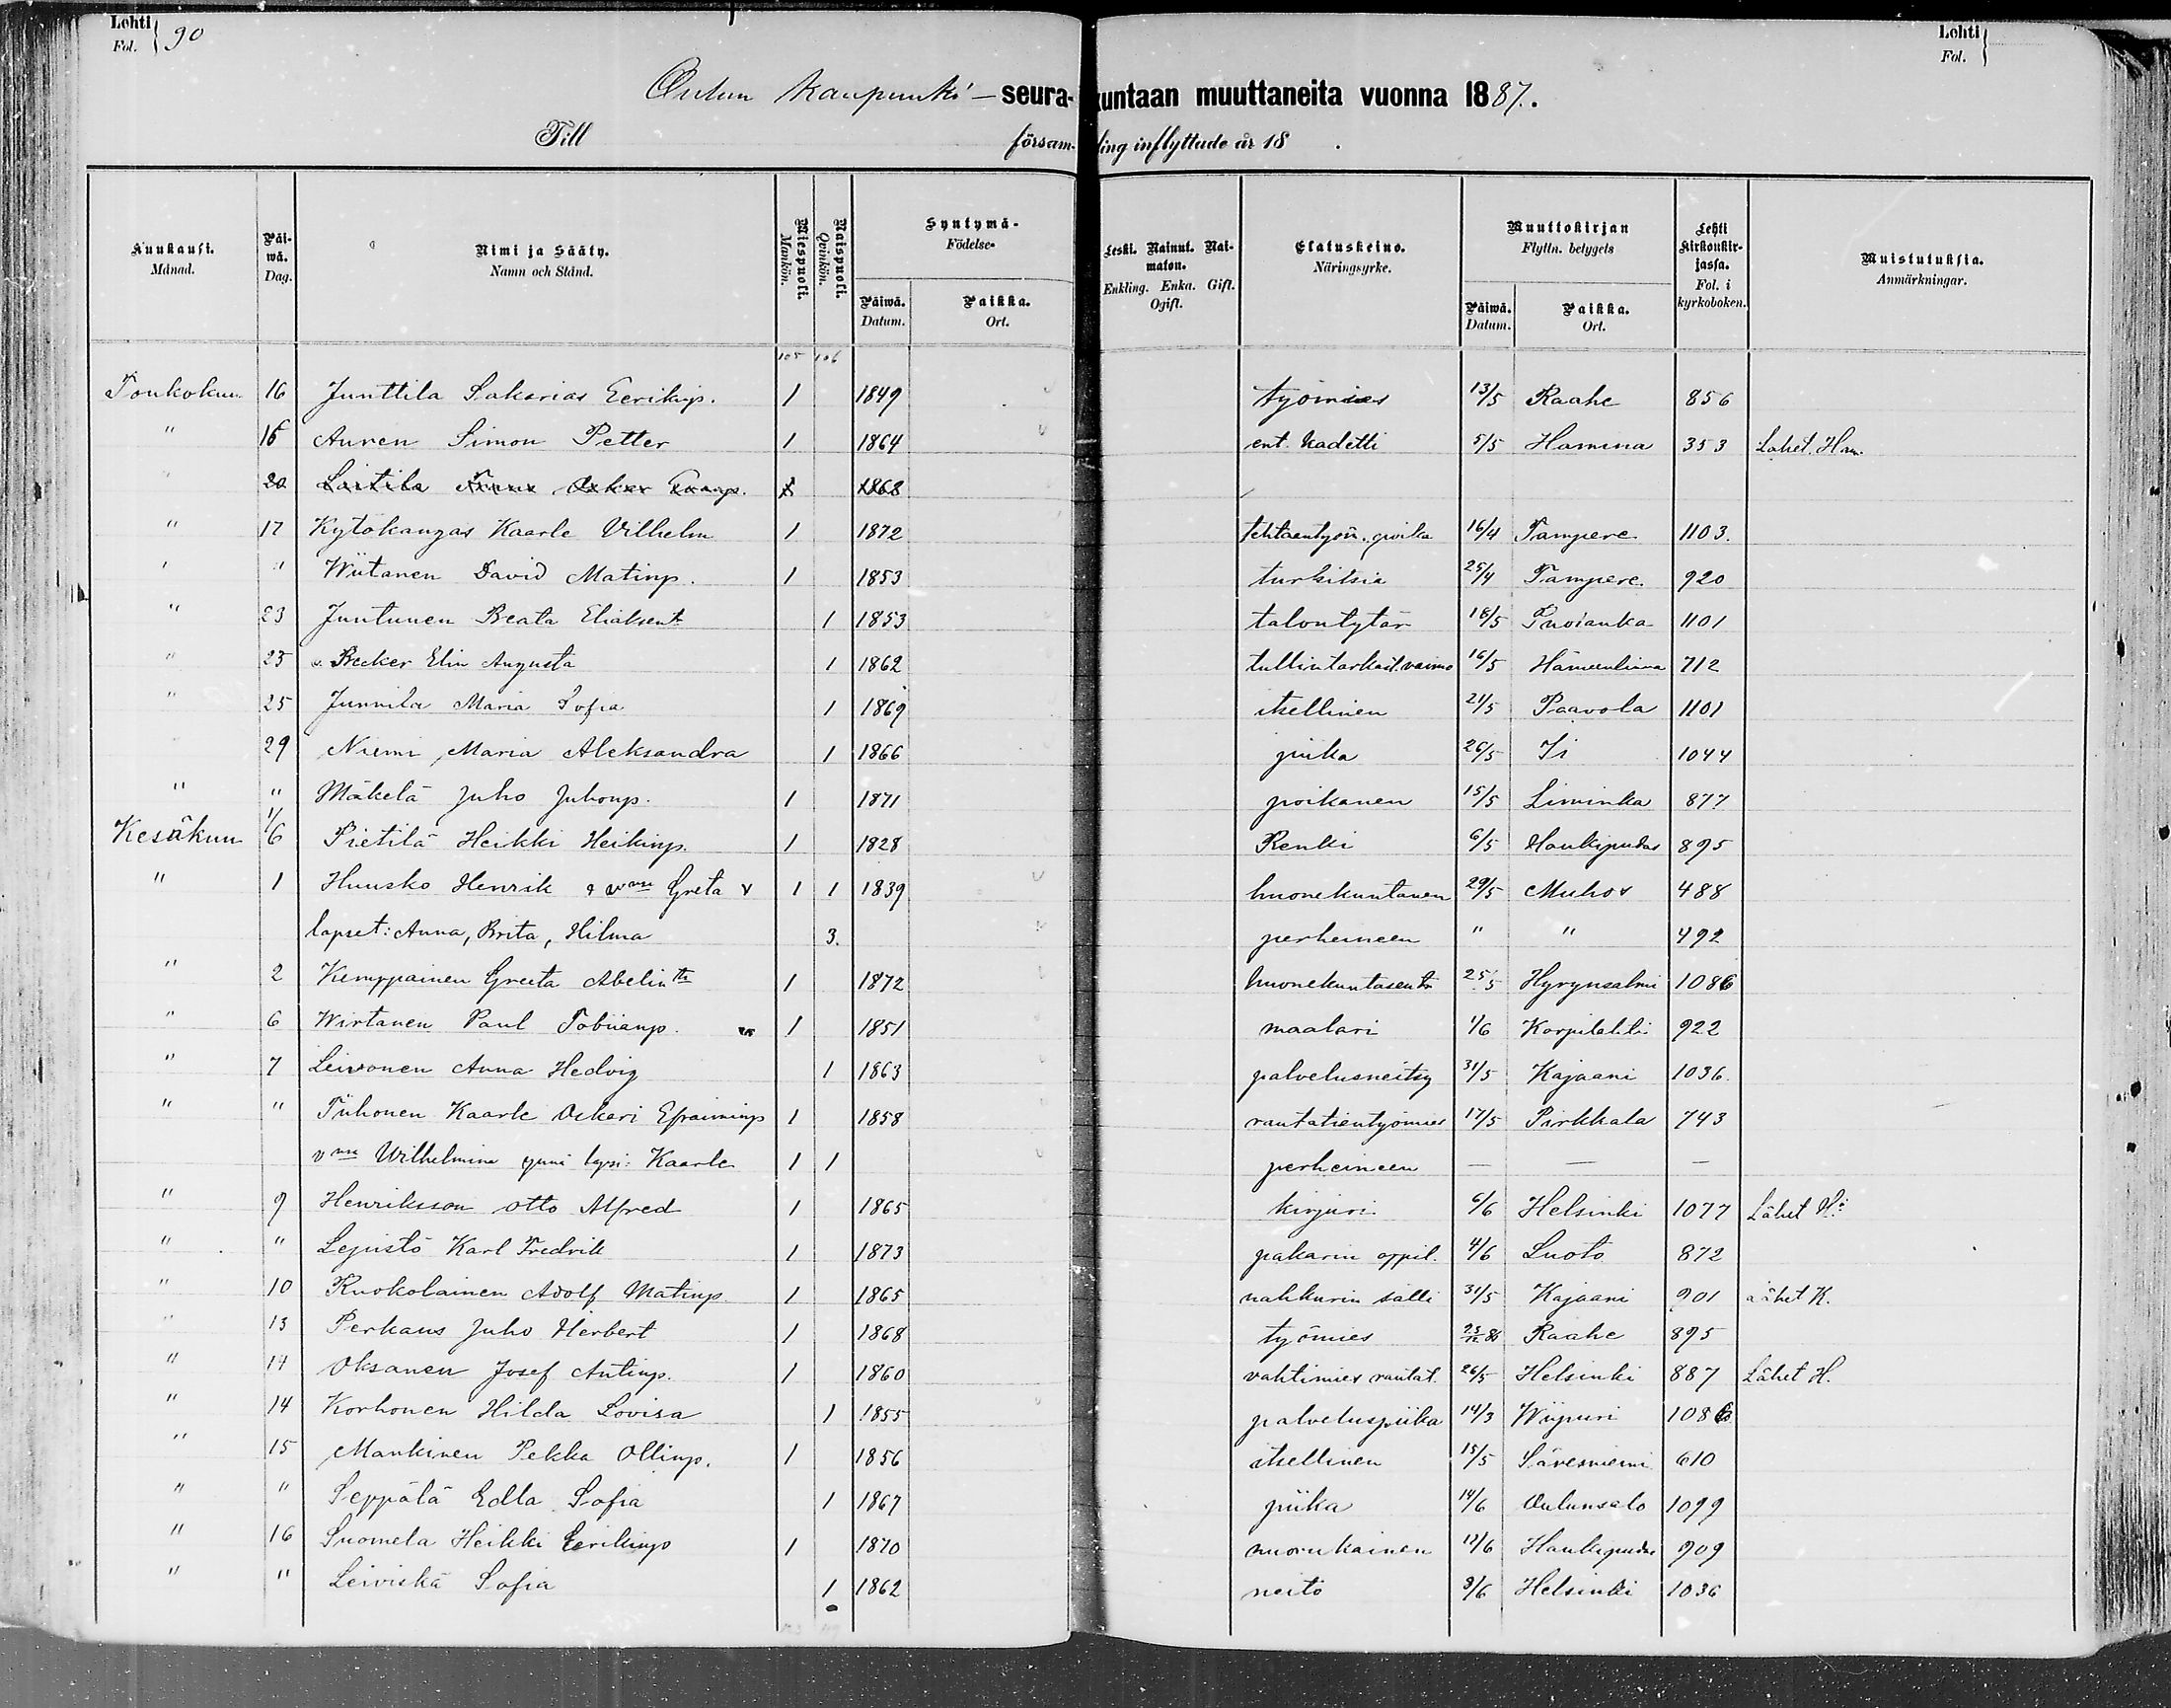 Lehti
Fol. } 90
Lehti
Fol. }
Oulun kaupunki - seurakuntaan muuttaneita vuonna 1887.
Till försam-ling inflyttade år 18 .
Kuukausi. Månad.
Päiwä. Dag.
Nimi ja Sääty. Namn och Stånd.
Miespuoli. Mankön.
Naispuoli. Qvinkön.
Syntymä- Födelse-
Päiwä. Datum.
Paikka. Ort.
Leski. Nainut. Naimaton. Enkling. Enka. Gift. Ogift.
Elatuskeino. Näringsyrke.
Muuttokirjan Flyttn. betygets
Päiwä. Datum.
Paikka. Ort.
Lehti Kirkonkirjassa. Fol. i kyrkoboken.
Muistutuksia. Anmärkningar.
105 106
Toukokuu 16 Junttila Sakarias Eerikinp. 1 1849 työmies 13/5 Raahe 856
" 16 Auren Simon Petter 1 1864 ent. kadetti 5/5 Hamina 353 Lähet. Ham.
" 20 Laitila Frans Oskar 1 1868
" 17 Kytökangas Kaarle Vilhelm 1 1872 tehtaantyön. poika 16/4 Tampere 1103.
" " Wiitanen David Matinp. 1 1853 turkitsia 25/4 Tampere. 920
" 23 Juntunen Beata Eliaksent. 1 1853 talontytär 18/5 Puolanka 1101
" 25 v. Becker Elin Augusta 1 1862 tullintarkast. vaimo 16/5 Hämeenlinna 712
" 25 Junnila Maria Sofia 1 1869 itsellinen 21/5 Paavola 1101
29 Niemi Maria Aleksandra 1 1866 piika 26/5 Ii 1044
" " Mäkelä Juho Juhonp. 1 1871 poikanen 15/5 Liminka 877
Kesäkuu 1/6 Pietilä Heikki Heikinp. 1 1828 Renki 6/5 Haukipudas 895
" 1 Huusko Henrik & vmo Greta & 1 1 1839 huonekuntanen 29/5 Muhos 488
lapset: Anna, Brita, Hilma 3. perheineen " " 492
" 2 Kemppainen Greeta Abelin tr 1 1872 huonekuntasen tr 25/5 Hyrynsalmi 1086
" 6 Wirtanen Paul Tobiianp. 1 1851 maalari 1/6 Korpilahti 922
" 7 Leivonen Anna Hedvig 1 1863 palvelusneitsy 31/5 Kajaani 1036.
" " Tiihonen Kaarle Oskari Efraiminp 1 1858 rautatientyömies 17/5 Pirkkala 743
vmo Wilhelmina ynnä lapsi: Kaarle 1 1 perheineen — — —
" 9 Henriksson Otto Alfred 1 1865 kirjuri 6/6 Helsinki 1077 Lähet H:
" " Lepistö Karl Fredrik 1 1873 pakarin oppil. 4/6 Luoto 872
" 10 Ruokolainen Adolf Matinp. 1 1865 nahkurin sälli 31/5 Kajaani 901 Lähet K.
" 13 Perkaus Juho Herbert 1 1868 työmies 25/12 86 Raahe 895
" 14 Oksanen Josef Antinp. 1 1860 vahtimies rautat. 26/5 Helsinki 887 Lähet H.
" 14 Korhonen Hilda Lovisa 1 1855 palveluspiika 14/3 Wiipuri 1086
" 15 Mankinen Pekka Ollinp. 1 1856 itsellinen 15/5 Säresniemi 610
" " Seppälä Edla Sofia 1 1867 piika 14/6 Oulunsalo 1099
" 16 Suomela Heikki Eerikinp 1 1870 nuorukainen 12/6 Haukipudas 909
" " Leiviskä Sofia 1 1862 neito 8/6 Helsinki 1036